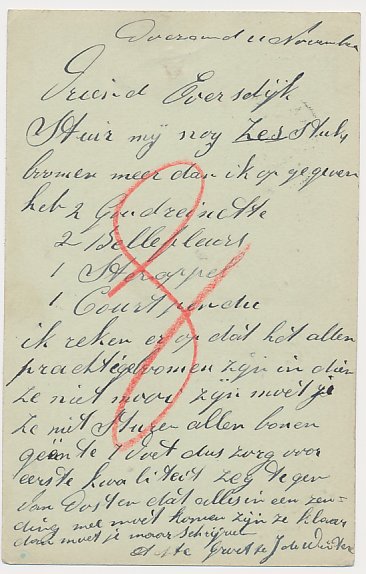 November
Vriend Eversdijk
Stuur mij nog zes stuks
boomen meer dan ik op gegeven
heb 2 Goudreinette
2 Bellefleurs
1 Sterappel
1 Courtpendu
ik reken er op dat het allen
prachtigeboomen zijn in dien
ze niet mooi zijn moet je
ze niet Sturen allen
7 voet dus zorg voor
eerste kwaliteit zeg tegen
van Oosten dat alles in een zen-
ding mee moet komen zijn ze klaar
dan moet je maar schrijven
Groet J de Winter